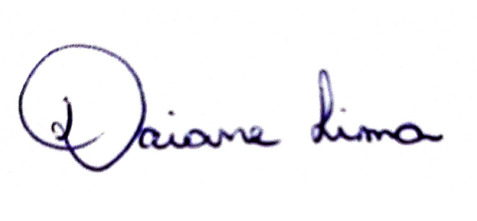 Daiane Lima